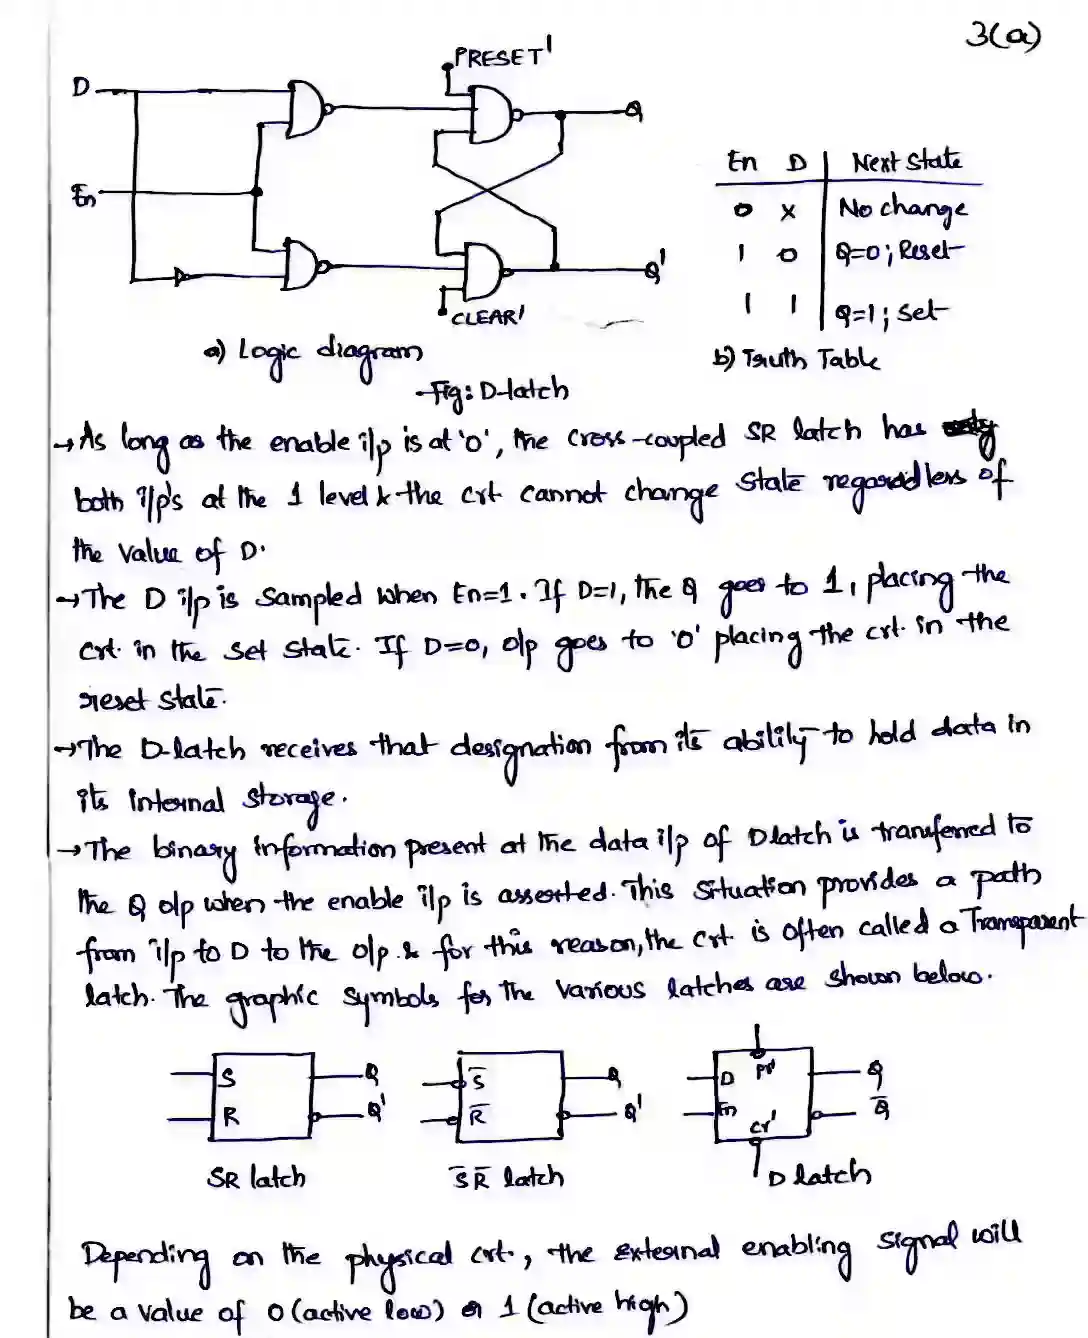 3(a)
PRESET'
D
Q
En
Q'
CLEAR'
a) Logic diagram
En D Next State
0 x No change
1 0 Q=0; Reset
1 1 Q=1; Set
b) Truth Table
Fig: D-latch
→ As long as the enable i/p is at '0', the cross-coupled SR latch has
both i/p's at the 1 level & the crt cannot change state regardless of
the value of D.
→ The D i/p is sampled when En=1. If D=1, the Q goes to 1, placing the
crt. in the set state. If D=0, o/p goes to '0' placing the crt. in the
reset state.
→ The D-latch receives that designation from its ability to hold data in
its internal storage.
→ The binary information present at the data i/p of D latch is transferred to
the Q o/p when the enable i/p is asserted. This situation provides a path
from i/p to D to the o/p & for this reason, the crt is often called a Transparent
latch. The graphic symbols for the various latches are shown below.
S Q
R Q'
SR latch
S̅ Q
R̅ Q'
S̅R̅ latch
D Pr' Q
En Q̅
Cr'
D latch
Depending on the physical crt., the external enabling signal will
be a value of 0 (active low) or 1 (active high)